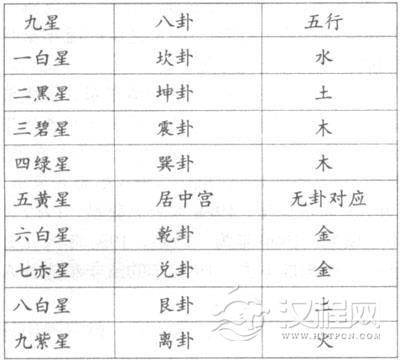 九星 八卦 五行
一白星 坎卦 水
二黑星 坤卦 土
三碧星 震卦 木
四绿星 巽卦 木
五黄星 居中宫 无卦对应
六白星 乾卦 金
七赤星 兑卦 金
八白星 艮卦 土
九紫星 离卦 火
汉程网
HTTPCN.COM